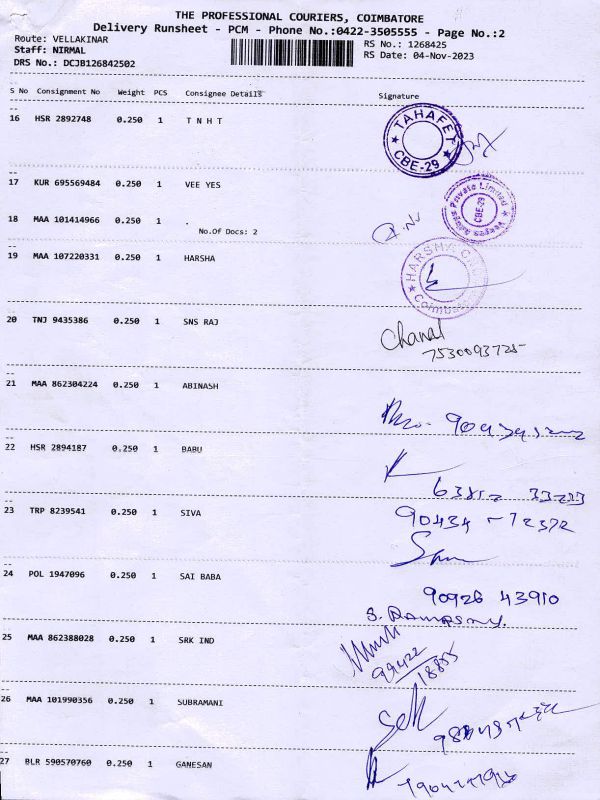 THE PROFESSIONAL COURIERS, COIMBATORE
Delivery Runsheet - PCM - Phone No.:0422-3505555 - Page No.:2
Route: VELLAKINAR
RS No.: 1268425
Staff: NIRMAL
RS Date: 04-Nov-2023
DRS No.: DCJB126842502
S No Consignment No Weight PCS Consignee Details Signature
16 HSR 2892748 0.250 1 T N H T
TAHAFET
CBE-29
17 KUR 695569484 0.250 1 VEE YES
Private Limited
CBE-29
18 MAA 101414966 0.250 1 .
No.Of Docs: 2
19 MAA 107220331 0.250 1 HARSHA
HARSHA
Coimbatore
20 TNJ 9435386 0.250 1 SNS RAJ
7530093725
21 MAA 862304224 0.250 1 ABINASH
22 HSR 2894187 0.250 1 BABU
23 TRP 8239541 0.250 1 SIVA
90434 - 72372
24 POL 1947096 0.250 1 SAI BABA
90926 43910
25 MAA 862388028 0.250 1 SRK IND
99422
18855
26 MAA 101990356 0.250 1 SUBRAMANI
27 BLR 590570760 0.250 1 GANESAN